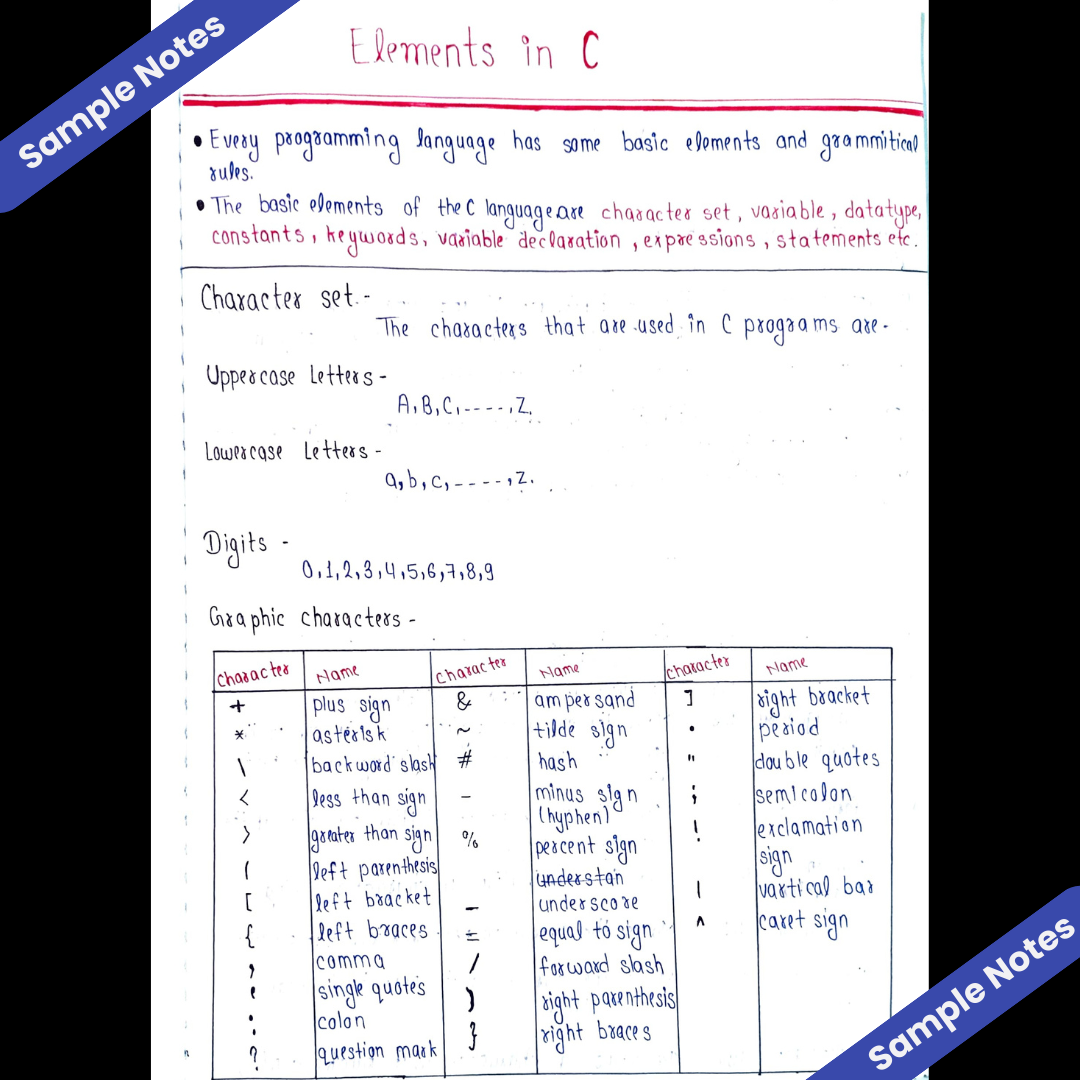 Sample Notes
Elements in C
• Every programming language has some basic elements and grammitical
rules.
• The basic elements of the C language are character set, variable, datatype,
constants, keywords, variable declaration, expressions, statements etc.
Character set -
The characters that are used in C programs are -
Uppercase Letters -
A, B, C, - - - -, Z.
Lowercase Letters -
a, b, c, - - - -, z.
Digits -
0, 1, 2, 3, 4, 5, 6, 7, 8, 9
Graphic characters -
character Name character Name character Name
+ plus sign & ampersand ] right bracket
* asterisk ~ tilde sign . period
\ backword slash # hash " double quotes
< less than sign - minus sign ; semicolon
(hyphen)
> greater than sign % percent sign ! exclamation
sign
( left parenthesis understan
[ left bracket _ underscore | vartical bar
{ left braces = equal to sign ^ caret sign
, comma / forward slash
' single quotes ) right parenthesis
: colon } right braces
? question mark
Sample Notes